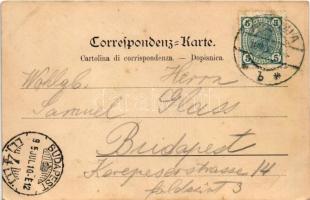 Correspondenz-Karte.
Cartolina di corrispondenza. — Dopisnica.
Wohlgb. Herrn
Samuel Glass
Budapest
Kerepeserstrasse 14
feldsint 3
5 5
b *
BUDAPEST
9 5 JUL 10-E12